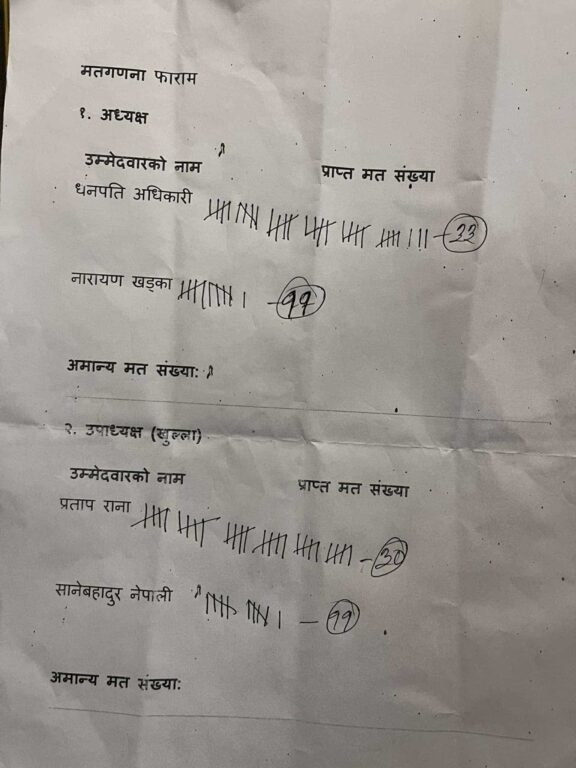 मतगणना फाराम
१. अध्यक्ष
उम्मेदवारको नाम प्राप्त मत संख्या
धनपति अधिकारी ३३
नारायण खड्का ११
अमान्य मत संख्या:
२. उपाध्यक्ष (खुल्ला)
उम्मेदवारको नाम प्राप्त मत संख्या
प्रताप राना ३०
सानेबहादुर नेपाली ११
अमान्य मत संख्या: